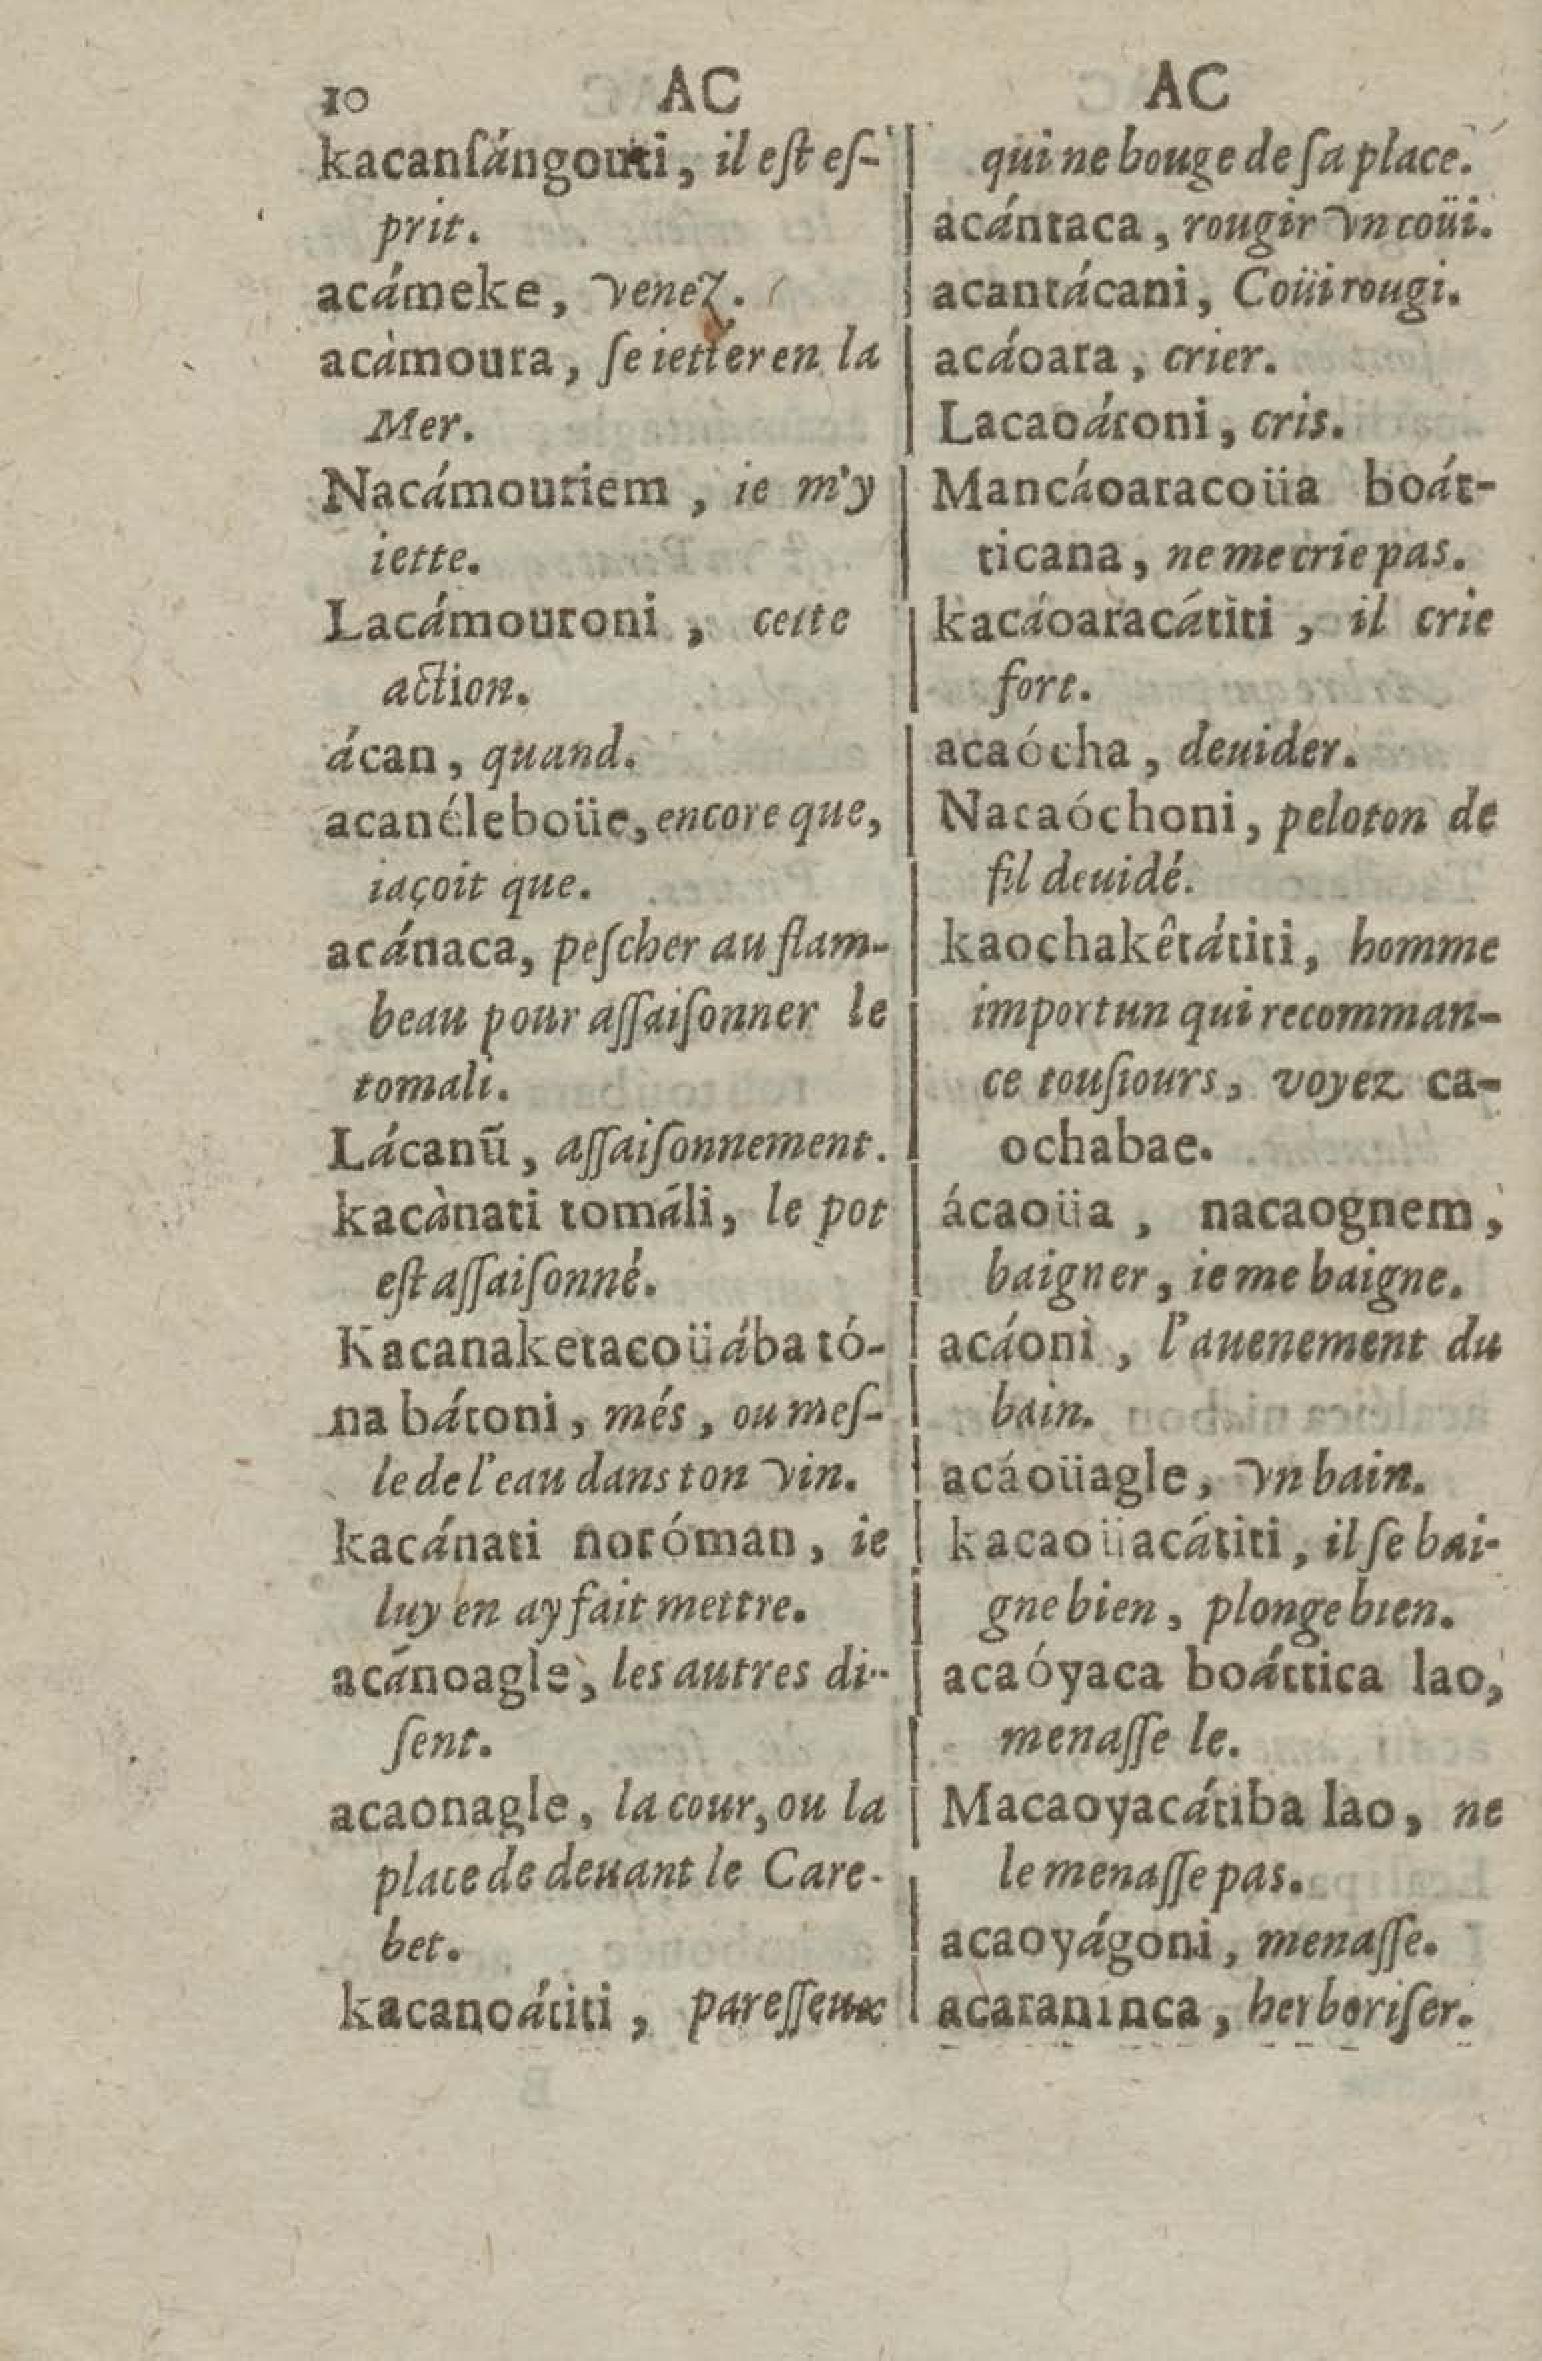 10 AC AC
kacanſángouti, il eſt eſ-
prit.
acámeke, venez.
acàmoura, ſe ietter en la
Mer.
Nacámouriem, ie m'y
iette.
Lacámouroni, cette
action.
ácan, quand.
acanéleboüe, encore que,
iaçoit que.
acánaca, peſcher au flam-
beau pour aſſaiſonner le
tomali.
Lácanū, aſſaiſonnement.
kacànati tomáli, le pot
eſt aſſaiſonné.
Kacanaketacoüába tó-
na bátoni, més, ou meſ-
le de l'eau dans ton vin.
kacánati notóman, ie
luy en ay fait mettre.
acánoagle, les autres di-
ſent.
acaonagle, la cour, ou la
place de deuant le Care-
bet.
kacanoátiti, pareſſeux
qui ne bouge de ſa place.
acántaca, rougir vn coüi.
acantácani, Coüi rougi.
acáoara, crier.
Lacaoátoni, cris.
Mancáoaracoüa boát-
ticana, ne me crie pas.
kacáoaracátiti, il crie
fort.
acaócha, deuider.
Nacaóchoni, peloton de
fil deuidé.
kaochakêtátiti, homme
importun qui recomman-
ce touſiours, voyez ca-
ochabae.
ácaoüa, nacaognem,
baigner, ie me baigne.
acáoni, l'auenement du
bain.
acáoüagle, vn bain.
kacaoüacátiti, il ſe bai-
gne bien, plonge bien.
acaóyaca boáttica lao,
menaſſe le.
Macaoyacátiba lao, ne
le menaſſe pas.
acaoyágoni, menaſſe.
acaraninca, herboriſer.